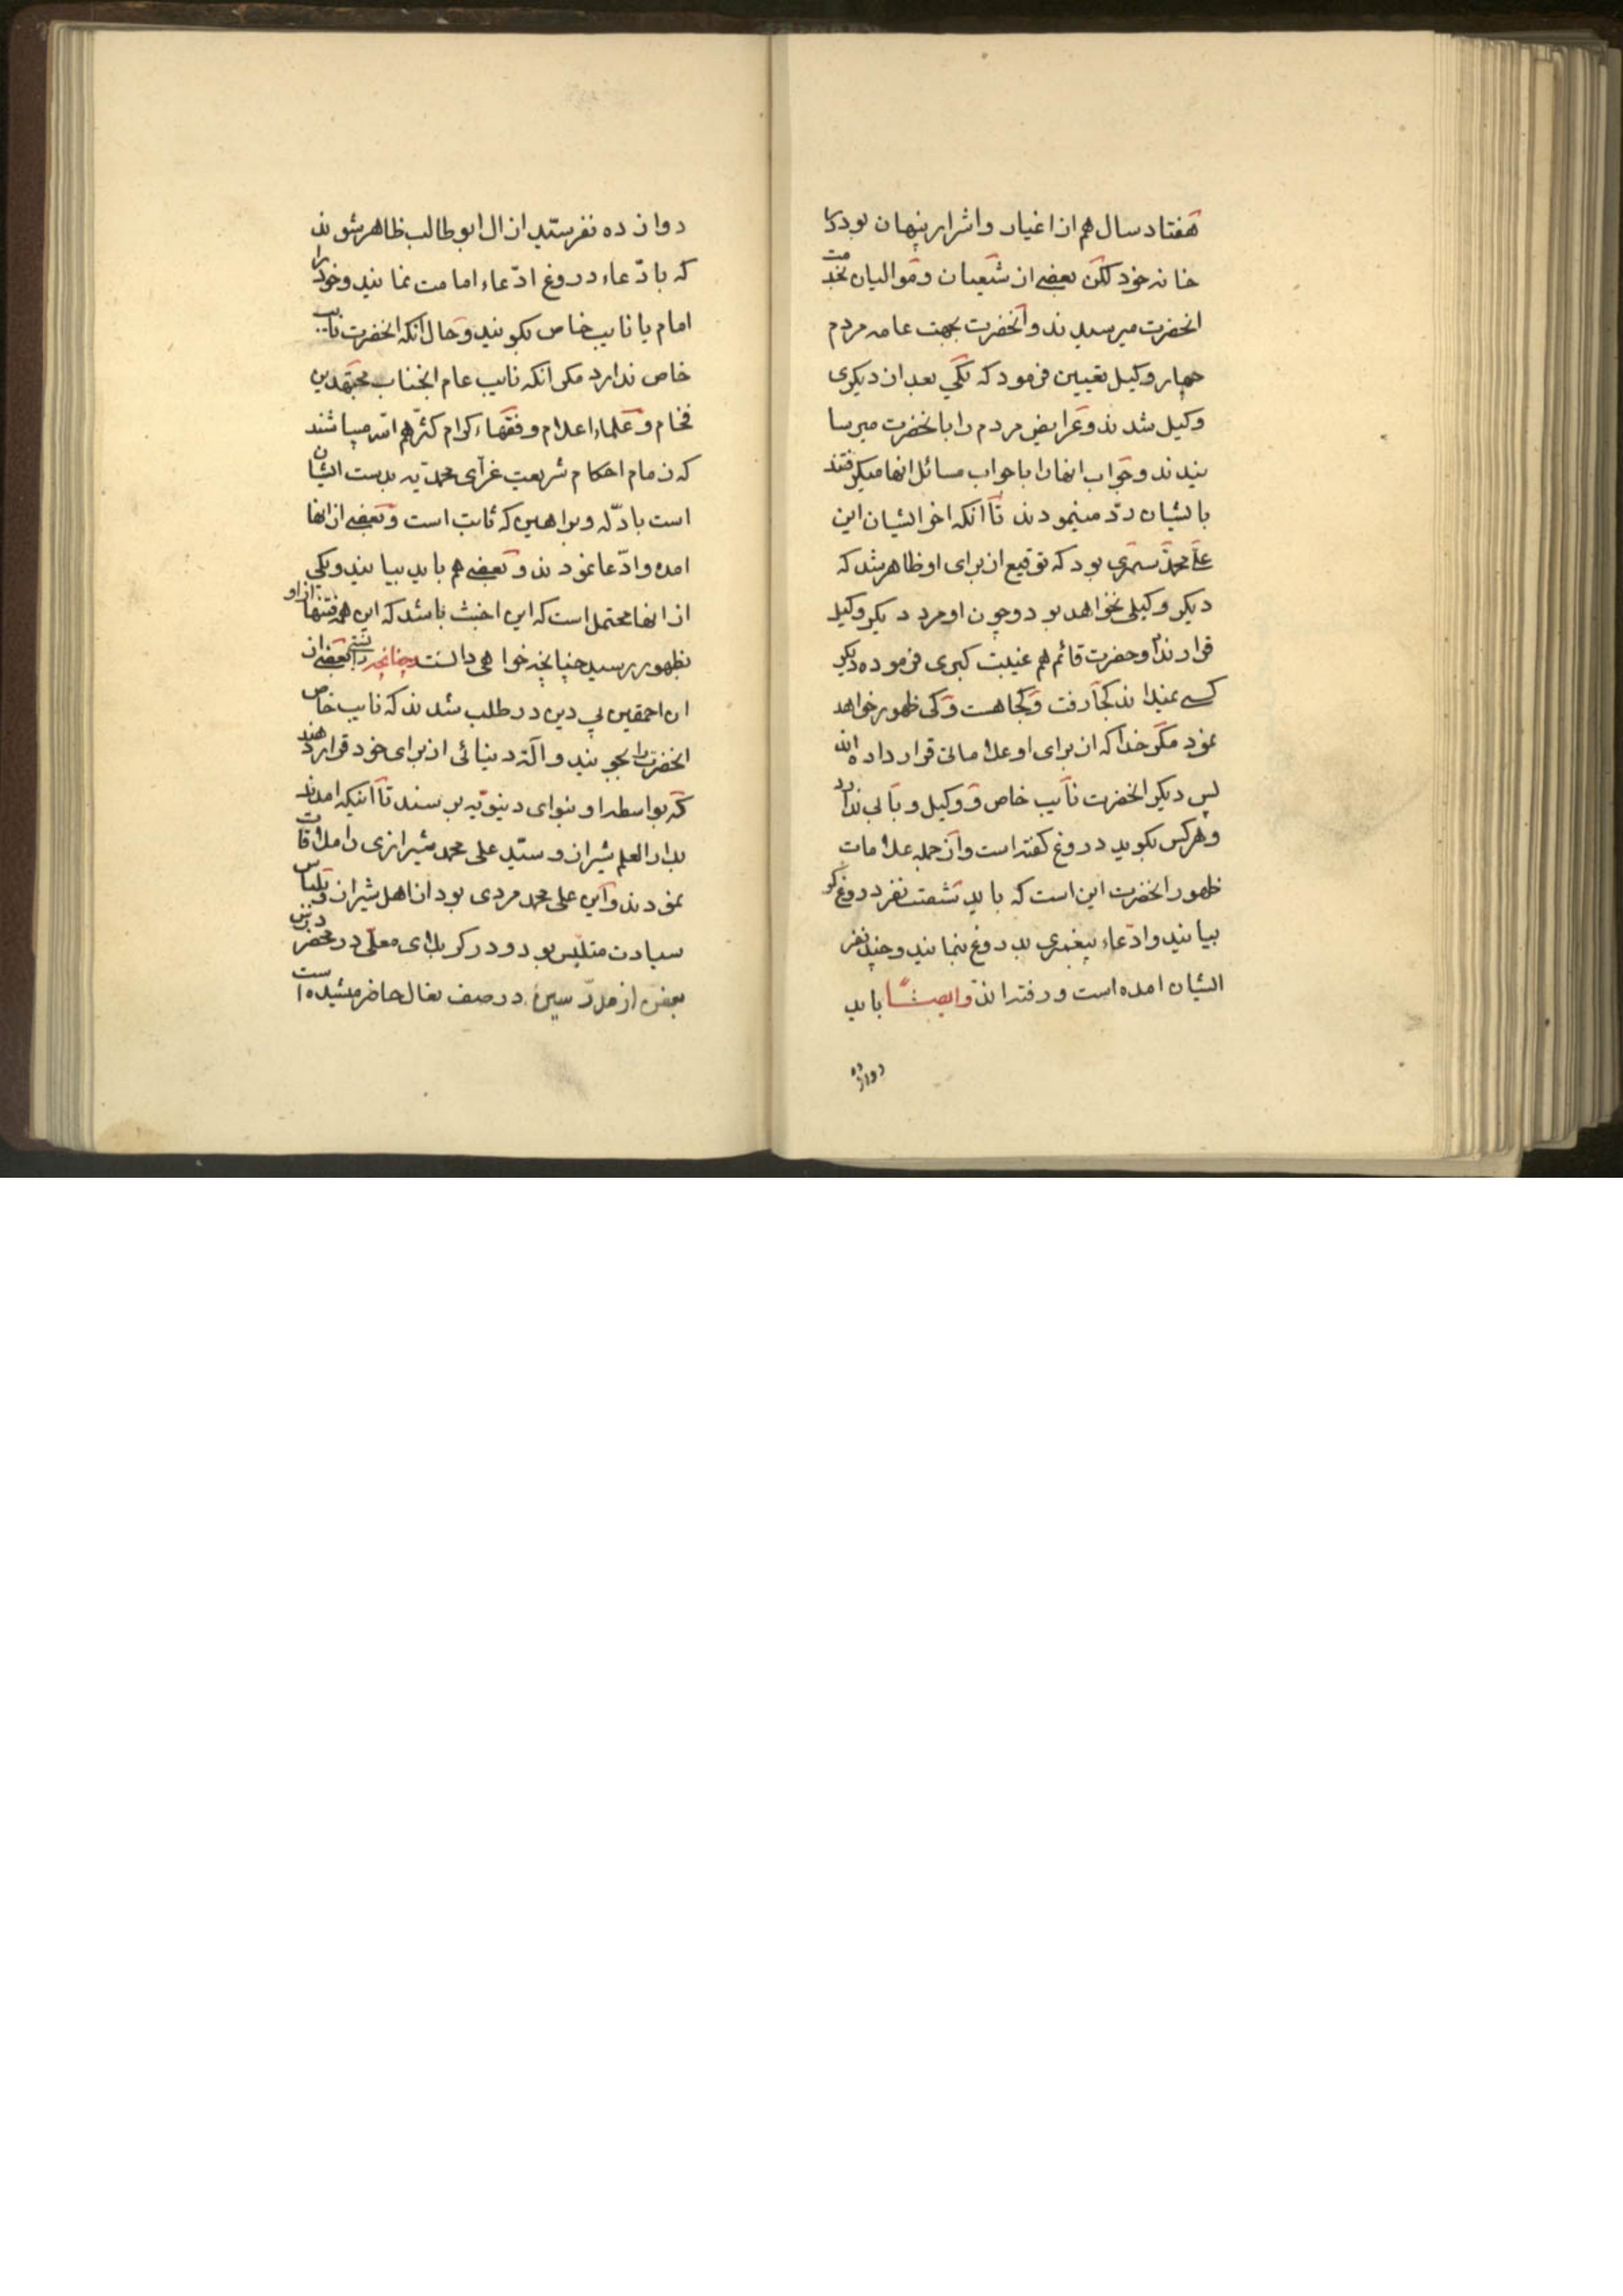 هفتاد سال هم از اغیار و اشرار پنهان بود در
خانه خود لکن بعضی از شیعیان و موالیان بخدمت
انحضرت میرسیدند و انحضرت بجهت عامه مردم
چهار وکیل تعیین فرمود که یکی بعد از دیکری
وکیل شدند و عرایض مردم را بانحضرت میرسا
نیدند و جواب انها را با جواب مسائل انها میکرفتند
بایشان رد مینمودند تا انکه اخر ایشان این
علی محمد سمری بود که توقیع از برای او ظاهر شد که
دیکر وکیلی نخواهد بود و چون او مرد دیکر وکیل
قرار نداد و حضرت قائم هم غیبت کبری فرموده دیکر
کسی نمیداند کجا رفت و کجا هست و کی ظهور خواهد
نمود مکر خدا که از برای او علاماتی قرار داده اند
پس دیکر انحضرت نایب خاص و وکیل و بابی ندارد
و هرکس بکوید دروغ کفته است و از جمله علامات
ظهور انحضرت این است که باید شصت نفر دروغ کو
بیایند و ادعاء پیغمبری بدروغ بنمایند و چند نفر
ایشان امده است و رفته اند و ایضا باید
دوازده
دوازده نفر سید از ال ابوطالب ظاهر شوند
که بادعاء دروغ ادعاء امامت نمایند و خود را
امام یا نایب خاص بکویند و حال انکه انحضرت نایب
خاص ندارد مکر انکه نایب عام انجناب مجتهدین
فخام و علماء اعلام و فقهاء کرام کثرهم الله میباشند
که زمام احکام شریعت غرای محمدیه بدست ایشان
است بادله و براهین که ثابت است و بعضی از انها
امده و ادعا نمودند و بعضی هم باید بیایند و یکی
از انها محتمل است که این اخبث باشد که این همه فتنها از او
بظهور رسید چنانچه خواهی دانست چنانچه بعضی از
ان احمقین بی دین در طلب شدند که نایب خاص
انحضرت را بجویند و الة دنیائی از برای خود قرار دهند
که بواسطه او بنوای دینویه برسند تا اینکه امدند
بدار العلم شیراز و سید علی محمد شیرازی را ملاقات
نمودند و این علی محمد مردی بود از اهل شیراز و بلباس
سیادت متلبس بود و در کربلای معلی در محضر درس
بعضی از مدرسین در صف نعال حاضر میشیده است